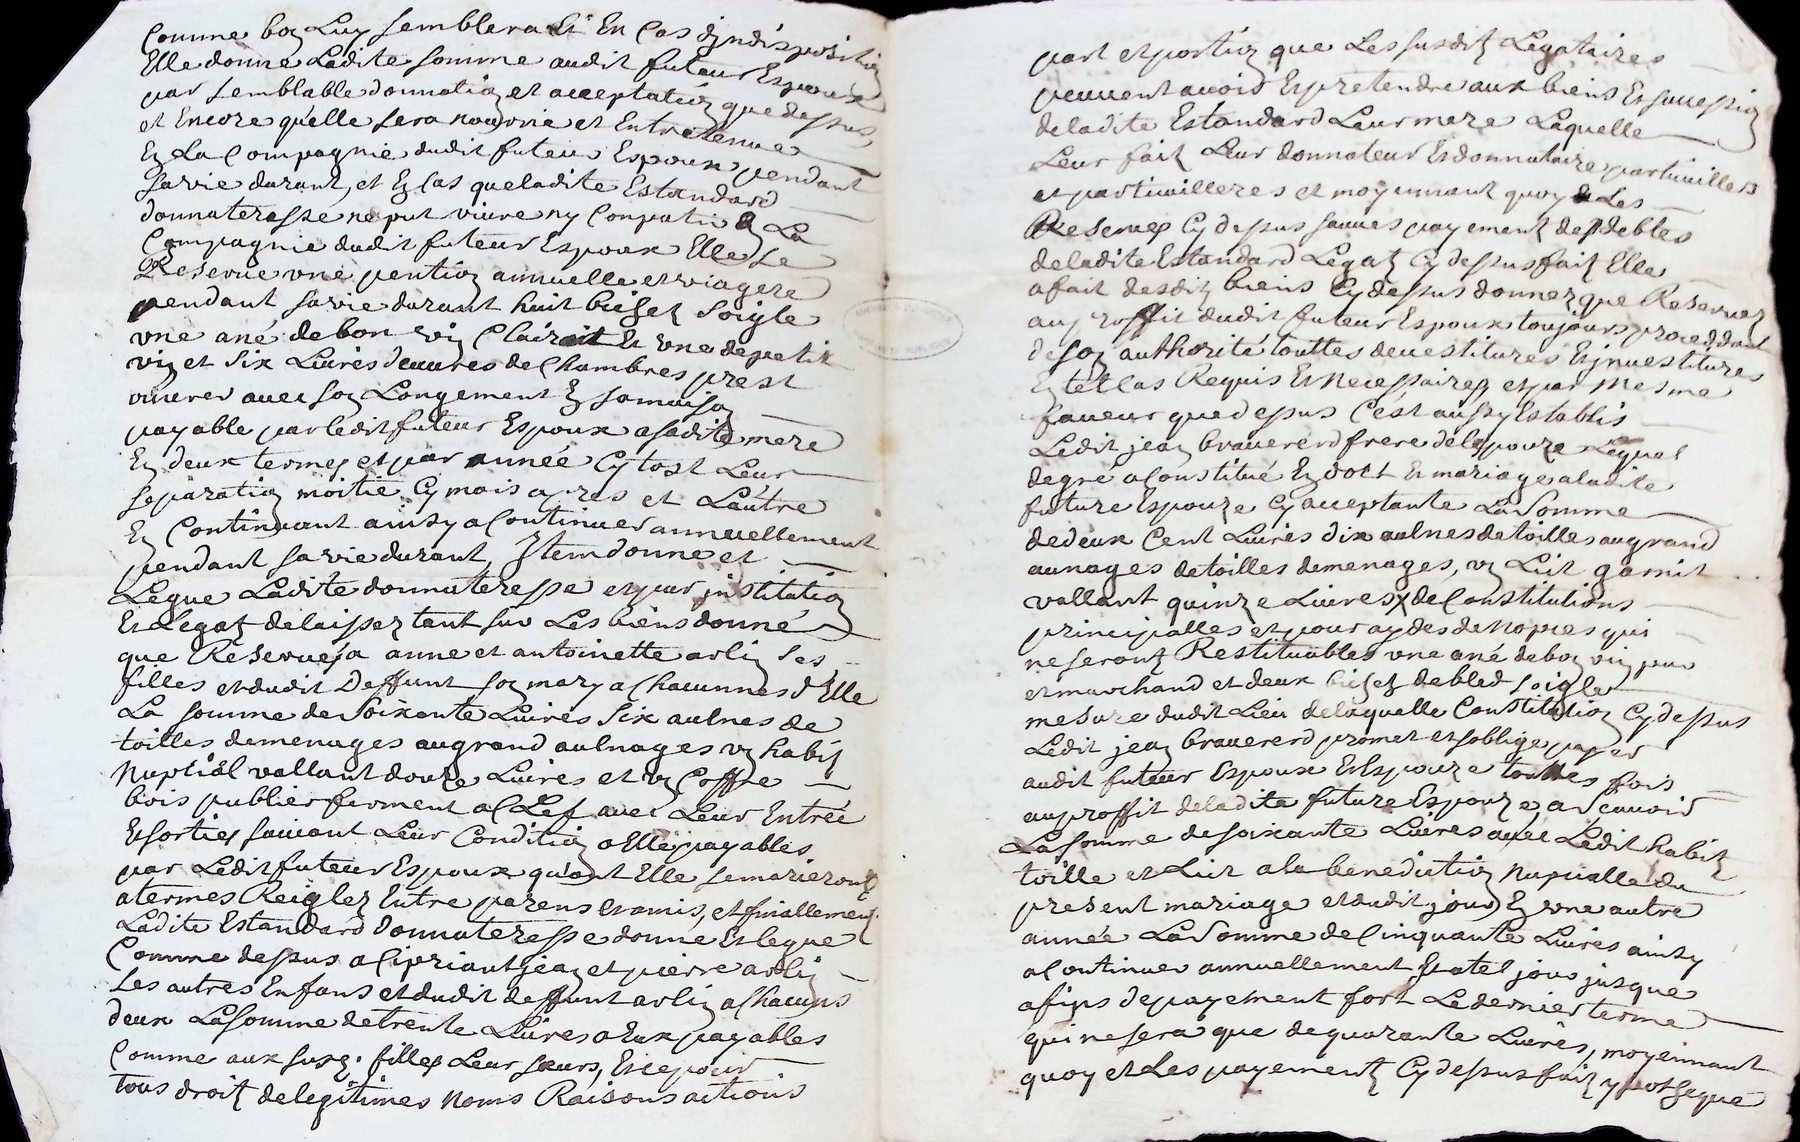 Comme bon Luy semblera Et En Cas djndisposition
Elle donne Ladite somme audit futeur Espoux
par semblable donnation et acceptation que dessus,
et Encore quélle sera nourrie et Entretenue
En La Compagnie dudit futeur Espoux pendant
sa vie durant, et En Cas que ladite Estandard
donnateresse ne put vivre ny Conpatir a La
Compagnie dudit futeur Espoux Elle Se
Reserve une pention annuelle et viagere
pendant sa vie durant huit bichet Soigle
une ané de bon vin Clairait Et une de petit
vin et six Livres deuvres de Chambres prest
ouvrer avec son Longement En sa maison
payable par ledit futeur Espoux a sadite mere
En deux termes et par année Cytost Leur
separation moitié Cy mois apres et Lautre
En Continuant ainsy a Continuer annuellement
pendant sa vie durant, Jtem donne et
Legue Ladite donnateresse et par institution
Et Legat delaissez tant sur Les biens donné
que Reserveś a anne et antoinette arlin ses
filles et dudit Deffunt son mary a Chacunnes d'Elle
La somme de Soixante Livres Six aulnes de
toilles de menages au grand aulnages un habit
Nuptial vallant douze Livres et un Coffre
bois publier ferment a Clef avec Leur Entrée
Et sorties suivant Leur Condition a Elle payables
par Ledit futeur Espoux quant Elle se marieront
a termes Reiglez Entre parens et amis, et finallement
Ladite Estandard Donnateresse donne Et legue
Comme dessus a Cipriant jean et pierre arlin
Les autres Enfans et dudit deffunt arlin a Chacuns
deux La Somme de trente Livres a Eux payables
Comme aux susd. filles Leur sœurs, Et ce pour
tous droit de legitimes Noms Raisons actions
part et portion que Les susdit Legataires
peuvent avoir Et pretendre aux biens Et succession
de ladite Estandard Leur mere Laquelle
Leur fait Leur donnateur Et donnataire particuillers
et particuilleres et moyennant quoy Les
Reserves Cy dessus sauves payement des debtes
de ladite Estandard Legat Cy dessus fait Elle
a fait desdit biens Cy dessus donnez que Reservez
au proffit dudit futeur Espoux toujours proceddant
de son authorité touttes devestitures Et jnvestitures
En tel Cas Requis Et Necessaires et par Mesme
faveur que dessus C'est aussy Establis
Ledit jean braverend frere de lespouze Lequel
de gré a Constitué En dott Et mariage a ladite
future Espouze Cy acceptante La Somme
de deux Cent Livres dix aulnes de toilles au grand
aunages de toilles de menages, un Lit garnit
vallant quinze Livres de Constitutions
principalles et pour aydes de Nopces qui
ne seront Restituables une ané de bon vin pur
et marchand et deux bichet de bled soigle
mesure dudit Lieu de laquelle Constitution Cy dessus
Ledit jean braverend promet et soblige payer
audit futeur Espoux Et Espouze touttes fois
au proffit de ladite future Espouze a Scavoir
La Somme de soixante Livres avec Ledit habit
toille et Lit a la benediction Nuptialle du
present mariage et dudit jour En une autre
année La Somme de Cinquante Livres ainsy
a Continuer annuellement a tel jour jusque
a fins de payement fort Le dernier terme
qui ne sera que de quarante Livres, moyennant
quoy et Les payement Cy dessus fait ypotheque